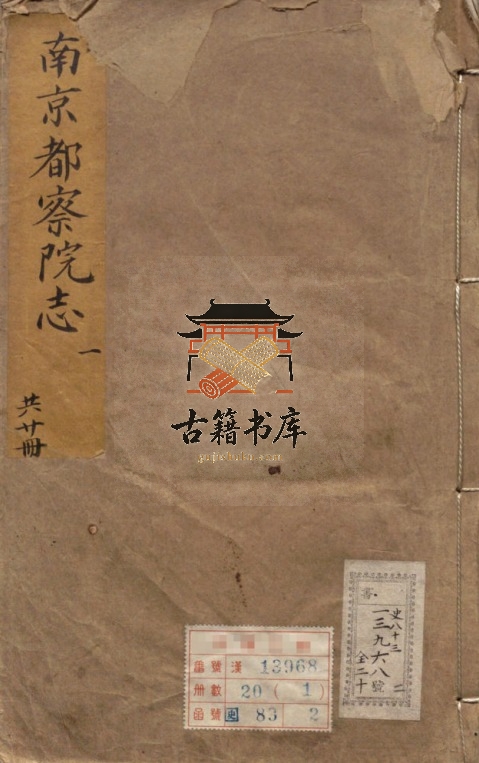 南京都察院志
一
共廿冊
古籍书库
gujishuku.com
番號 漢 13968
冊數 20 ( 1 )
函號 史 83 2
史八十三 二
一三九六八號
全二十